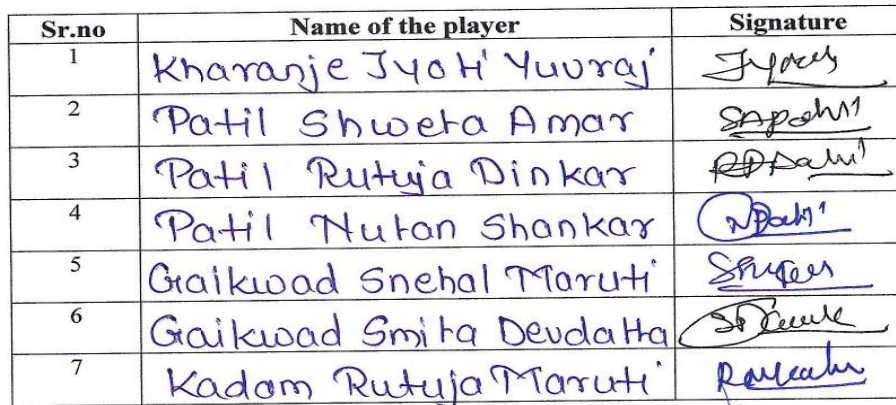 Sr.no Name of the player Signature
1 Kharanje Jyoti Yuvraj
2 Patil Shweta Amar SAPatil
3 Patil Rutuja Dinkar RDPatil
4 Patil Nutan Shankar NPatil
5 Gaikwad Snehal Maruti
6 Gaikwad Smita Devdatta
7 Kadam Rutuja Maruti